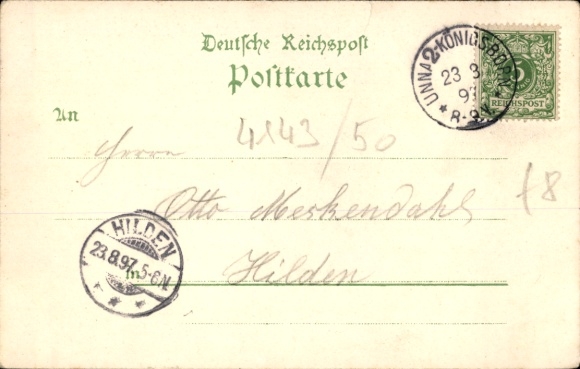 Deutsche Reichspost
Postkarte
UNNA 2-KÖNIGSBORN
23 8
97
* 8-9 V. *
5
REICHSPOST
An
4143/50
Herrn
Otto Meskendahl
f8
HILDEN
23.8.97. 5-6N.
* * *
in
Hilden